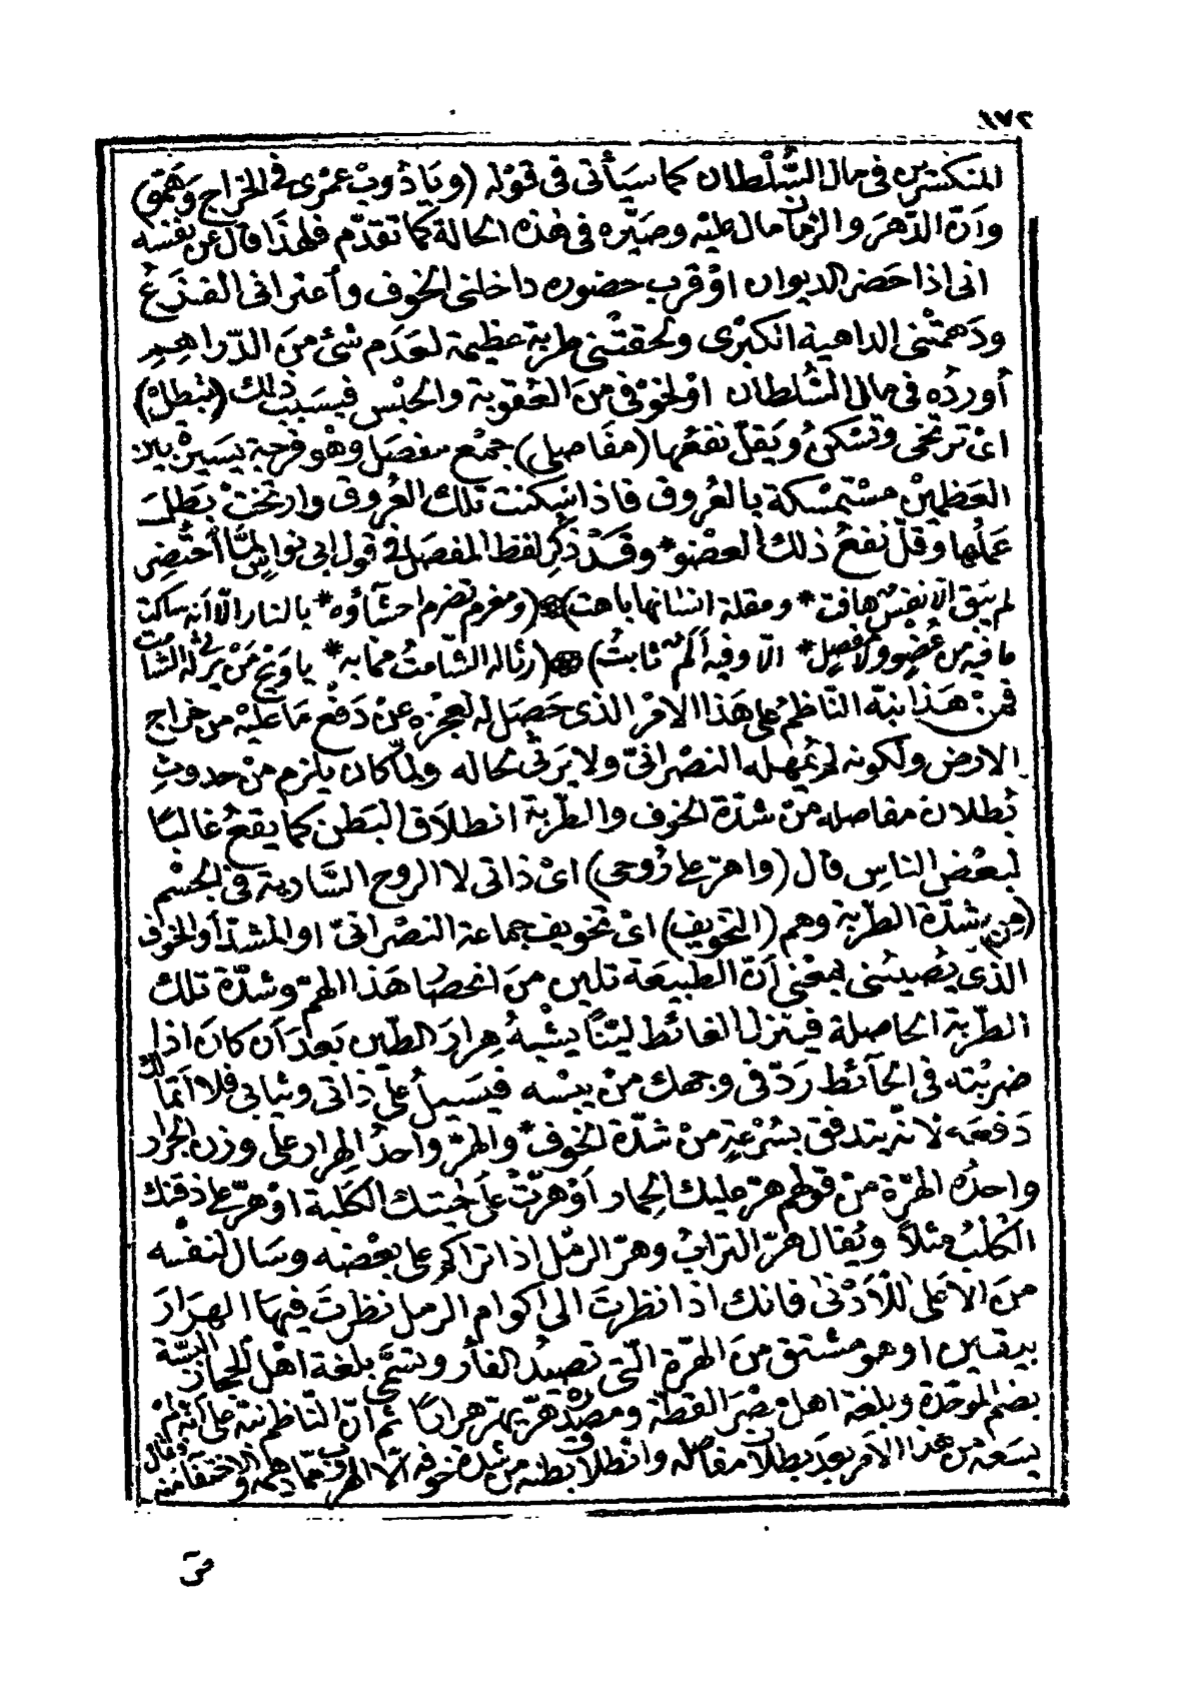 ١٧٢
المنكسرين في مال السُّلْطان كما سيَأتى فى قوله (ويَا دُوبْ عمْرى في الخراج وَهَمّو)
وأنّ الدّهرَ والزمان مال عليْه وصَيّره فى هٰذه الحالة كما تقدّم فلهذا قال عن نفسه
انى اذا حَضر الديوان اوْ قرب حضوره داخلنى الخوف وأعترانى الفَزَعُ
ودَهمتْنى الداهية الكبْرى ولحقتْنى طربة عظيمة لعَدَم شئ منَ الدّراهم
أوردُه فى مال السُّلطان اوْلخوْفى منَ العُقوبة والحبْس فبسَببَ ذلك (تبطل)
اىْ ترتخى وتسْكنُ ويَقلّ نفعُها (مفَاصلى) جمْع مفصَل وهْو فرجة يَسيرة بين
العَظمين مسْتمْسكة بالعُروق فاذا سكنت تلك العُروق وارتخَتْ بَطلَ
عملُها وقلّ نفعُ ذلك العضْو * وقَدْ ذكِر لفظ المفصَل فى قول ابى نواس لمَّا أحتُضِر
لم يَبق الا نفسٌ هافت * ومقلة انسانها باهت) (ومغرم تضرم احشآؤه * بالنار الّا أنه ساكت
ما فيه من عُضو ولا مفصِل * الّا وفيه ألمٌ ثابتُ) (رثا له الشّامتُ ممّا به * يا ويْحَ مَنْ يَرثى له الشامت
فمنْ هَذا نبّه النّاظمُ على هَذا الامْر الذى حَصَل له لعجْزه عنْ دَفْع مَا عليْه من خراج
الارض ولكونه لم يُمْهله النصْرانىّ ولا يَرثى لحاله ولمّا كان يلزم منْ حدوثِ
بُطلان مفاصله منْ شدّة الخوف والطَّربة انطلاَق البَطن كما يقعُ غالبًا
لبعْض الناسِ قال (واهرّ على رُوحى) اىْ ذاتى لا الروح السَّارية فى الجسْم
(من) شدّة الطربة وهم (التخويف) اىْ تخويف جماعة النصْرانىّ او المشدّ أو الخوف
الذى يُصيبُنى بمعْنى أنّ الطبيعَة تلين منَ انحصار هَذا الهمّ وشدّة تلك
الطّربة الحاصلة فينزل الغائط ليّنًا يشْبهُ هِرارَ الطّين بَعدَ أن كانَ اذا
ضربْته فى الحآئط رَدّ فى وجهك منْ يبْسه فيَسيلُ علَى ذاتى وثيابى فلا اتمَالك
دَفعَه لانّه يتدفق بسُرْعةٍ منْ شدّة الخوف * والهرّ واحدُ الهِرار على وزن الجرَار
واحدُه الهرّة منْ قولهم هرّ عليك الحِمار أوْ هرّتْ على لحيتك الكَلبة اوْ هرّ على ذقنك
الكلبُ مثلًا ويُقال هرّ الترابُ وهرّ الرمْل اذا تراكم على بعْضه وسَال لنفسْه
منَ الأعْلى للأدْنى فانك اذا نظرتَ الى اكوام الرمل نظرتَ فيهَا الهرَارَ
بيقين اوهو مشتق منَ الهرّة الّتى تصيدُ الفأر وتسمّى بلغة اهْل الحجاز البسّة
بضم الموحّدة وبلغة اهل مصْرَ القطّة ومصدره هرّ يهرّ هرارًا ثمّ انّ النّاظم نبّه على أنّه لمْ
يسَعه من هذا الأمر بعدَ بطلان مفاصله وانطلاق بطنه من شدّة خوفه الّا الهروب ممّا دهمه والاختفا منه وقال